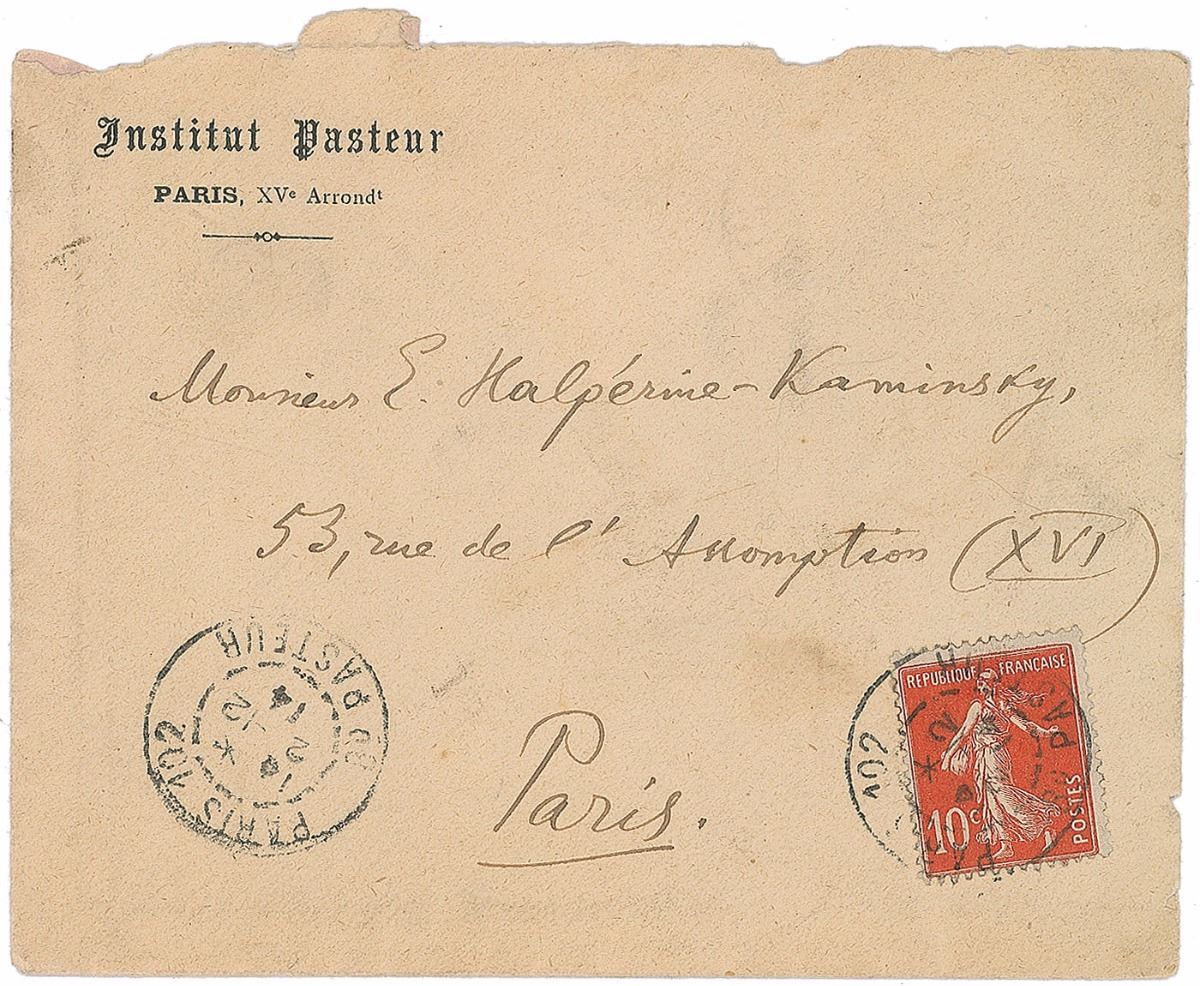 Institut Pasteur
PARIS, XVe Arrondt
Monsieur E. Halpérine-Kaminsky,
53, rue de l'Assomption (XVI)
Paris.
PARIS 102
BD PASTEUR
102
REPUBLIQUE FRANÇAISE
10c
POSTES